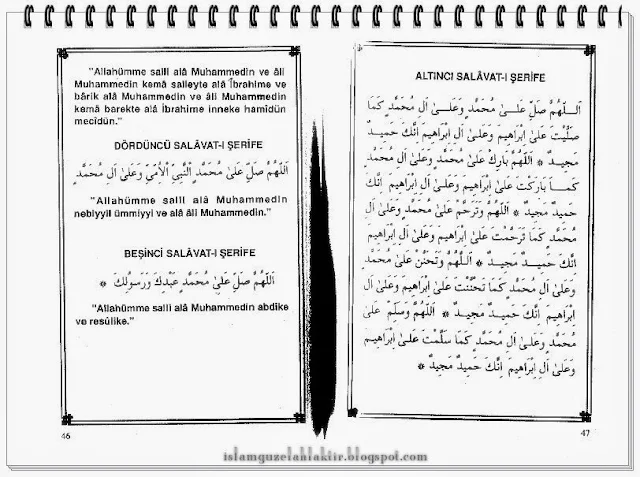 "Allahümme salli alâ Muhammedin ve âli
Muhammedin kemâ salleyte alâ İbrahime ve
bârik alâ Muhammedin ve âli Muhammedin
kemâ barekte alâ İbrahime inneke hamîdün
mecîdün."
DÖRDÜNCÜ SALÂVAT-I ŞERİFE
اَللّٰهُمَّ صَلِّ عَلٰى مُحَمَّدٍ النَّبِيِّ الْاُمِّيِّ وَعَلٰى اٰلِ مُحَمَّدٍ
"Allahümme salli alâ Muhammedin
nebiyyil ümmiyyi ve alâ âli Muhammedin."
BEŞİNCİ SALÂVAT-I ŞERİFE
اَللّٰهُمَّ صَلِّ عَلٰى مُحَمَّدٍ عَبْدِكَ وَرَسُولِكَ *
"Allahümme salli alâ Muhammedin abdike
ve resûlike."
46
ALTINCI SALÂVAT-I ŞERİFE
اَللّٰهُمَّ صَلِّ عَلٰى مُحَمَّدٍ وَعَلٰى اٰلِ مُحَمَّدٍ كَمَا
صَلَّيْتَ عَلٰى اِبْرَاهِيمَ وَعَلٰى اٰلِ اِبْرَاهِيمَ اِنَّكَ حَمِيدٌ
مَجِيدٌ * اَللّٰهُمَّ بَارِكْ عَلٰى مُحَمَّدٍ وَعَلٰى اٰلِ مُحَمَّدٍ
كَمَا بَارَكْتَ عَلٰى اِبْرَاهِيمَ وَعَلٰى اٰلِ اِبْرَاهِيمَ اِنَّكَ
حَمِيدٌ مَجِيدٌ * اَللّٰهُمَّ وَتَرَحَّمْ عَلٰى مُحَمَّدٍ وَعَلٰى اٰلِ
مُحَمَّدٍ كَمَا تَرَحَّمْتَ عَلٰى اِبْرَاهِيمَ وَعَلٰى اٰلِ اِبْرَاهِيمَ
اِنَّكَ حَمِيدٌ مَجِيدٌ * اَللّٰهُمَّ وَتَحَنَّنْ عَلٰى مُحَمَّدٍ
وَعَلٰى اٰلِ مُحَمَّدٍ كَمَا تَحَنَّنْتَ عَلٰى اِبْرَاهِيمَ وَعَلٰى اٰلِ
اِبْرَاهِيمَ اِنَّكَ حَمِيدٌ مَجِيدٌ * اَللّٰهُمَّ وَسَلِّمْ عَلٰى
مُحَمَّدٍ وَعَلٰى اٰلِ مُحَمَّدٍ كَمَا سَلَّمْتَ عَلٰى اِبْرَاهِيمَ
وَعَلٰى اٰلِ اِبْرَاهِيمَ اِنَّكَ حَمِيدٌ مَجِيدٌ *
47
islamguzelahlaktir.blogspot.com